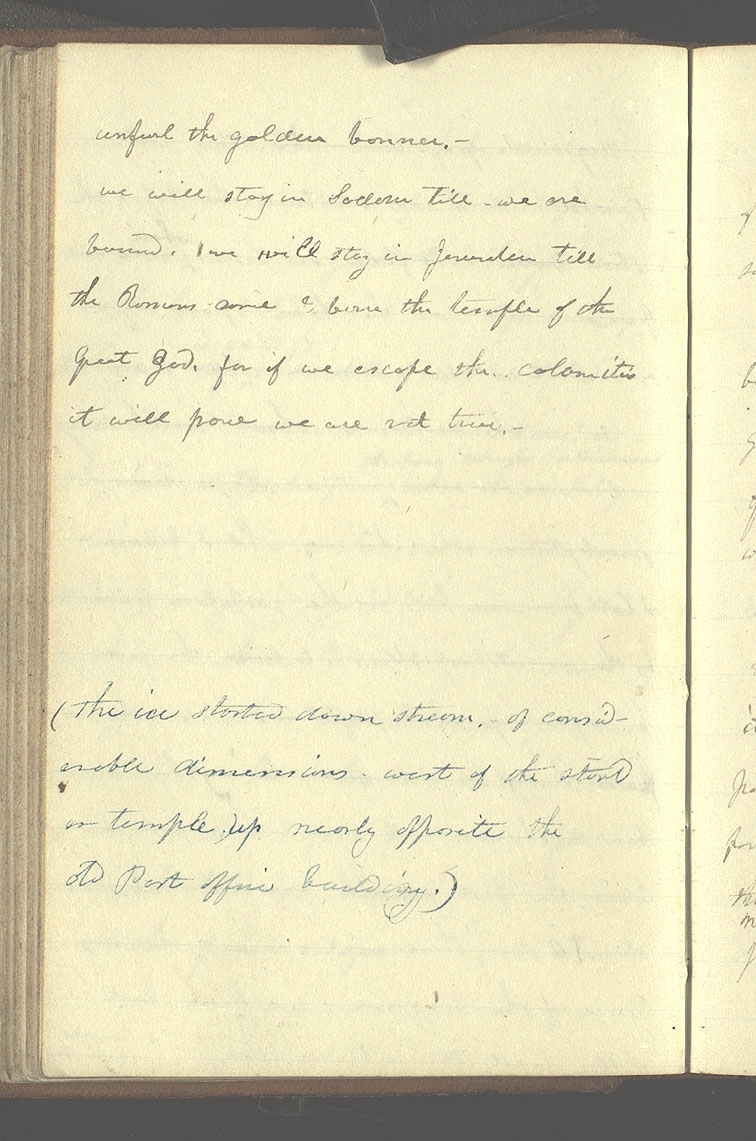 unfurl the golden bonner. –
we will stay in Sodom till we are
burnd. we will stay in Jerusalem till
the Romans come & burn the temple of the
great God. for if we escape the calamities
it will prove we are not true. –
(The ice started down stream. of consid-
erable dimensions. west of the stand
or temple, up nearly opposite the
old Post office building.)